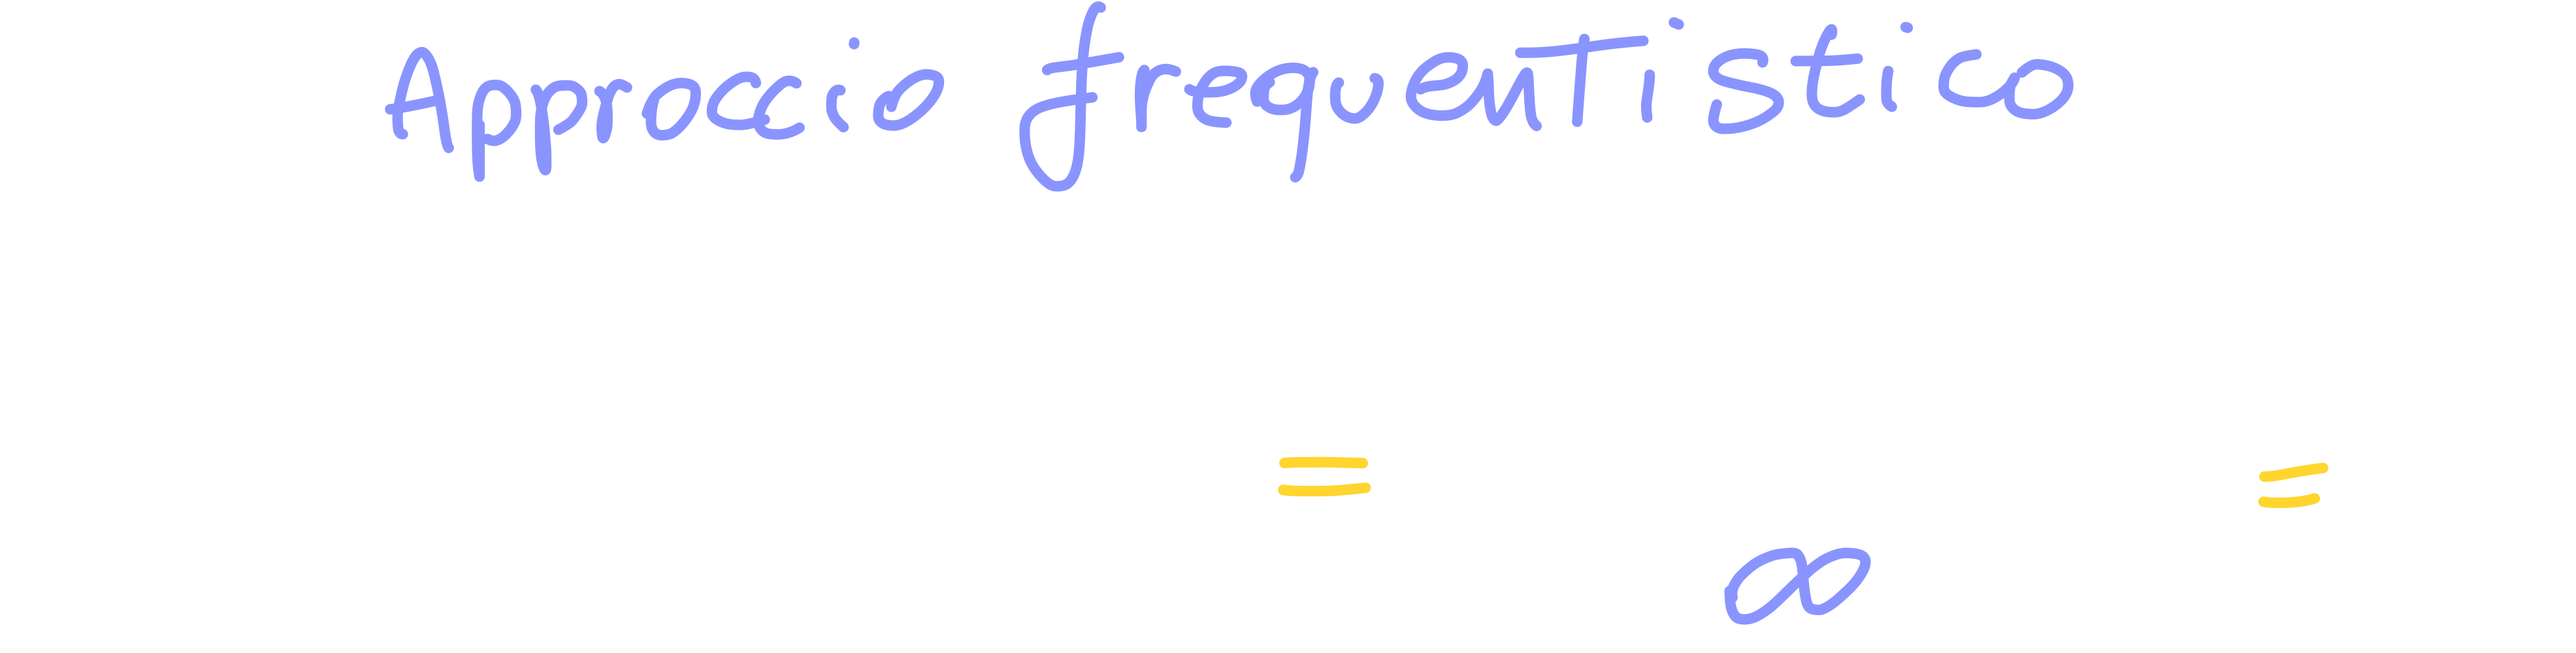 Approccio frequentistico
= =
∞